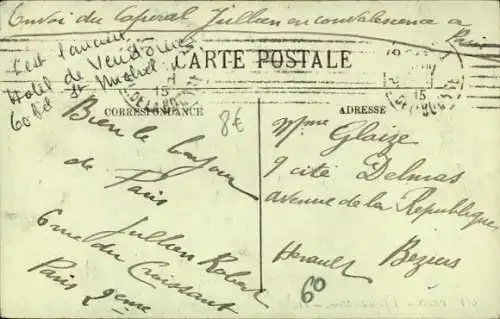 Envoi du Caporal Jullien en convalescence a Paris
c'est l'ancien
Hotel de Vendôme
60 Bd St Michel
CARTE POSTALE
15
15
CORRESPONDANCE
ADRESSE
8€
Bien le bonjour
de Paris
Jullien Robert
6 rue du Croissant
Paris 2eme
Mme Glaize
9 cité Delmas
avenue de la Republique
Beziers
Herault
60